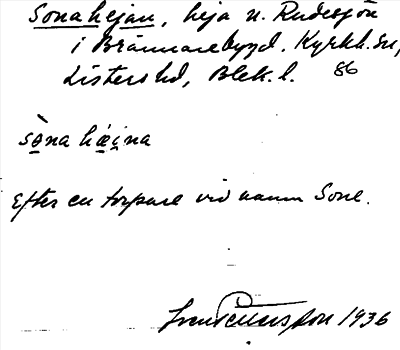 Sonahejan, heja n. Rudesjön
i Brännarebygd. Kyrkh. sn,
Listers hd, Blek. l. 86
sònahæina
Efter en torpare vid namn Sone.
1936